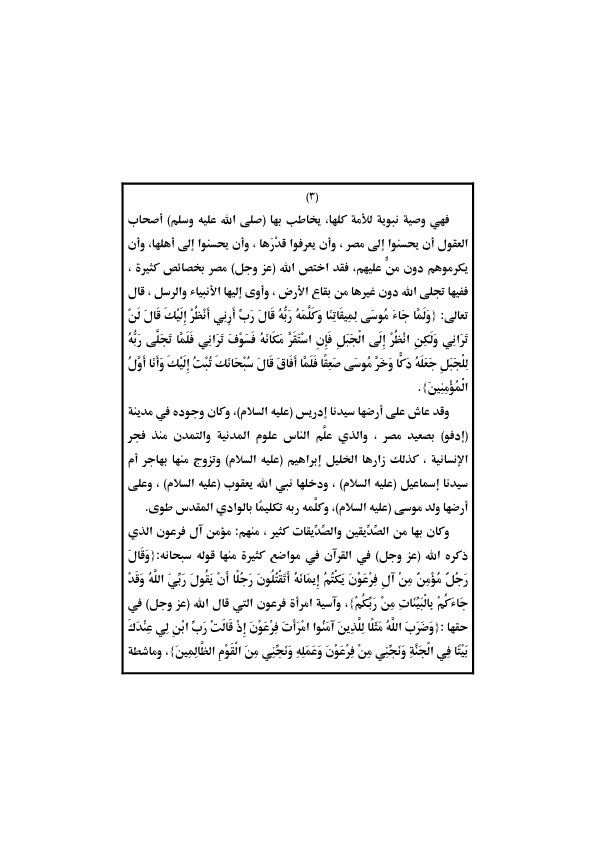 (٣)
فهي وصية نبوية للأمة كلها، يخاطب بها (صلى الله عليه وسلم) أصحاب
العقول أن يحسنوا إلى مصر ، وأن يعرفوا قدْرَها ، وأن يحسنوا إلى أهلها، وأن
يكرموهم دون منٍّ عليهم، فقد اختص الله (عز وجل) مصر بخصائص كثيرة ،
ففيها تجلى الله دون غيرها من بقاع الأرض ، وأوى إليها الأنبياء والرسل ، قال
تعالى: {وَلَمَّا جَاءَ مُوسَى لِمِيقَاتِنَا وَكَلَّمَهُ رَبُّهُ قَالَ رَبِّ أَرِنِي أَنْظُرْ إِلَيْكَ قَالَ لَنْ
تَرَانِي وَلَكِنِ انْظُرْ إِلَى الْجَبَلِ فَإِنِ اسْتَقَرَّ مَكَانَهُ فَسَوْفَ تَرَانِي فَلَمَّا تَجَلَّى رَبُّهُ
لِلْجَبَلِ جَعَلَهُ دَكًّا وَخَرَّ مُوسَى صَعِقًا فَلَمَّا أَفَاقَ قَالَ سُبْحَانَكَ تُبْتُ إِلَيْكَ وَأَنَا أَوَّلُ
الْمُؤْمِنِينَ}.
وقد عاش على أرضها سيدنا إدريس (عليه السلام)، وكان وجوده في مدينة
(إدفو) بصعيد مصر ، والذي علَّم الناس علوم المدنية والتمدن منذ فجر
الإنسانية ، كذلك زارها الخليل إبراهيم (عليه السلام) وتزوج منها بهاجر أم
سيدنا إسماعيل (عليه السلام) ، ودخلها نبي الله يعقوب (عليه السلام) ، وعلى
أرضها ولد موسى (عليه السلام)، وكلَّمه ربه تكليمًا بالوادي المقدس طوى.
وكان بها من الصِّدِّيقين والصِّدِّيقات كثير ، منهم: مؤمن آل فرعون الذي
ذكره الله (عز وجل) في القرآن في مواضع كثيرة منها قوله سبحانه:{وَقَالَ
رَجُلٌ مُؤْمِنٌ مِنْ آلِ فِرْعَوْنَ يَكْتُمُ إِيمَانَهُ أَتَقْتُلُونَ رَجُلًا أَنْ يَقُولَ رَبِّيَ اللَّهُ وَقَدْ
جَاءَكُمْ بِالْبَيِّنَاتِ مِنْ رَبِّكُمْ}، وآسية امرأة فرعون التي قال الله (عز وجل) في
حقها :{وَضَرَبَ اللَّهُ مَثَلًا لِلَّذِينَ آمَنُوا امْرَأَتَ فِرْعَوْنَ إِذْ قَالَتْ رَبِّ ابْنِ لِي عِنْدَكَ
بَيْتًا فِي الْجَنَّةِ وَنَجِّنِي مِنْ فِرْعَوْنَ وَعَمَلِهِ وَنَجِّنِي مِنَ الْقَوْمِ الظَّالِمِينَ}، وماشطة